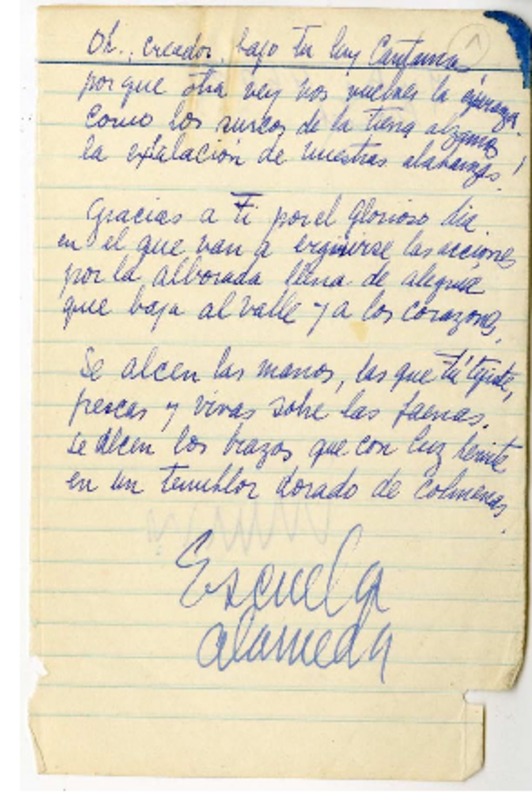 Oh, creador, bajo tu luz cantamos
porque otra vez nos vuelves la esperanza.
Como los surcos de la tierra alzamos
la exhalación de nuestras alabanzas!
Gracias a Ti por el glorioso día
en el que van a erguirse las acciones
por la alborada llena de alegría
que baja al valle y a los corazones.
Se alcen las manos, las que tú tejiste,
frescas y vivas sobre las faenas.
Se alcen los brazos que con luz heriste
en un temblor dorado de colmenas.
Escuela
alameda